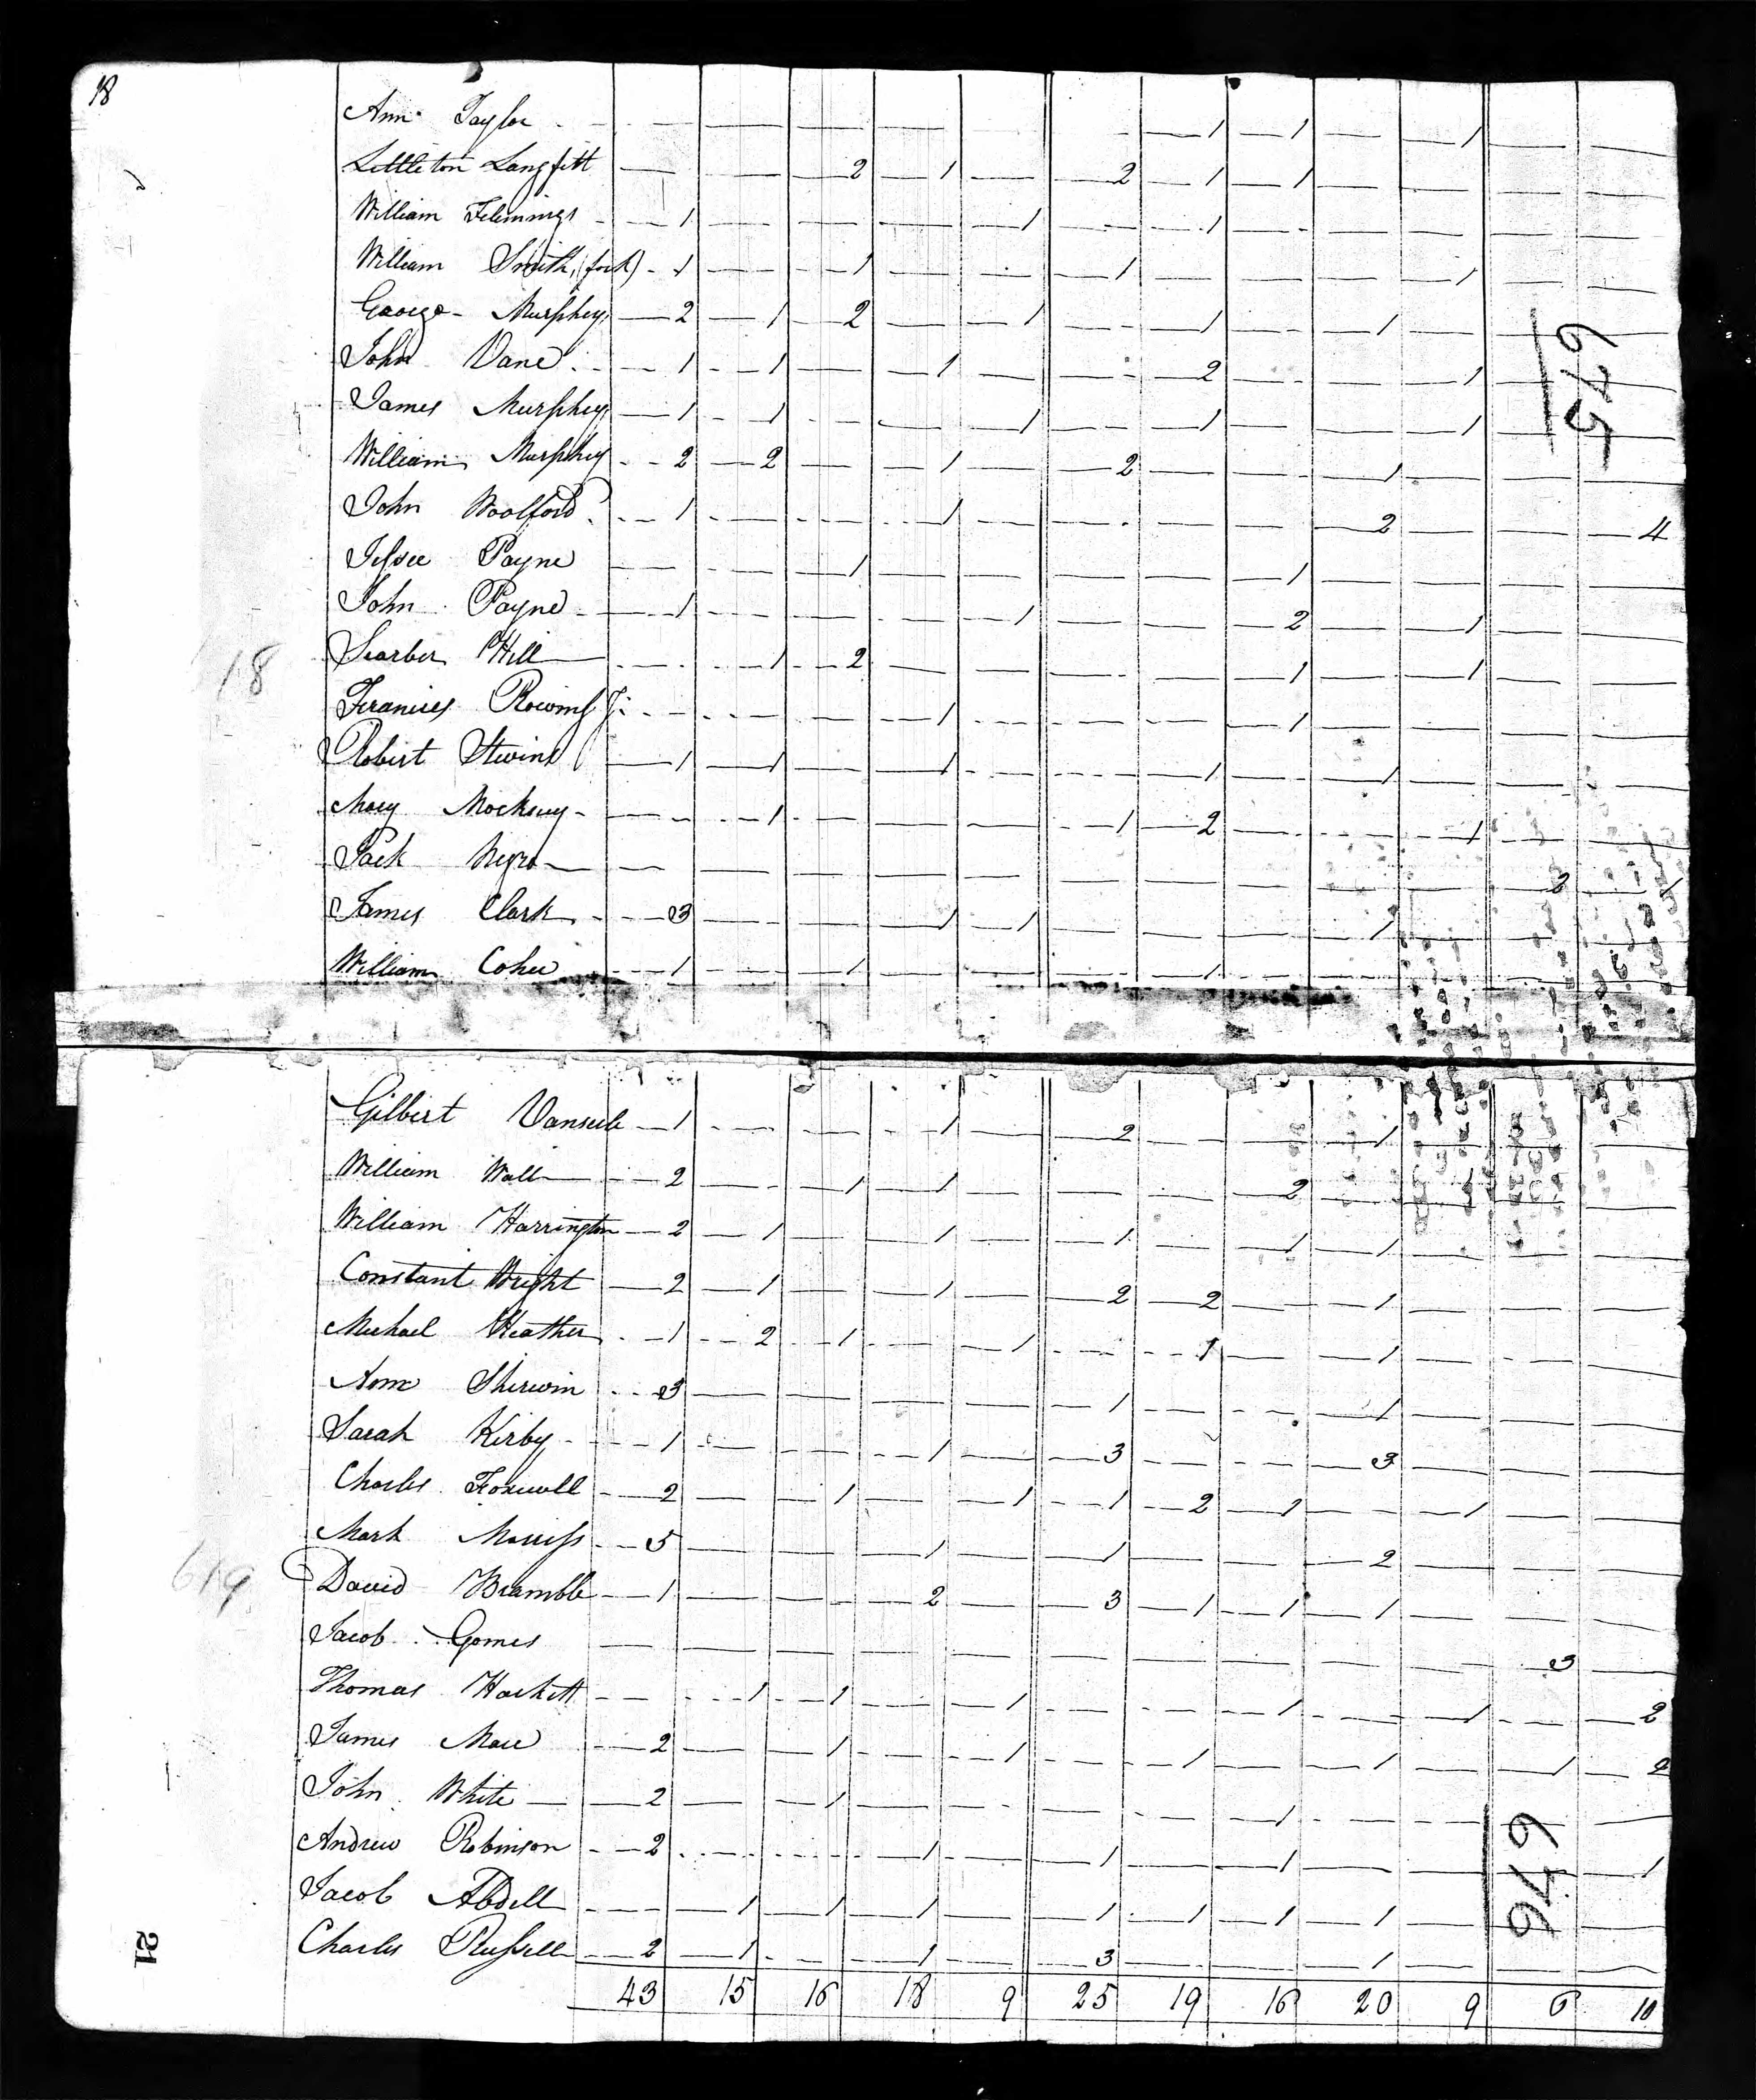 18
Ann Taylor — — — — — — 1 1 — 1 — —
Littleton Langfitt — — 2 1 — 2 1 1 — — — —
William Flemmings 1 — — — 1 — 1 — — — — —
William Smith, (fork) 1 — 1 — — 1 — — — 1 — —
George Murphey 2 1 2 — 1 — 1 — 1 — — —
John Vane 1 1 — 1 — — 2 — — 1 — —
675
James Murphey 1 1 — — 1 — 1 — — 1 — —
William Murphey 2 2 — 1 — 2 — — 1 — — —
John Woolford 1 — — 1 — — — — 2 — — 4
Jessee Payne — — 1 — — — — 1 — — — —
John Payne 1 — — — 1 — — 2 — 1 — —
18
Hill — 1 2 — — — — 1 — 1 — —
— — — 1 — — — 1 — — — —
Robert 1 1 — 1 — — 1 — 1 — — —
Mary — 1 — — — 1 2 — — 1 — —
Jack Negro — — — — — — — — — — 3
James Clark 3 — — 1 1 — — — 1 — — —
William 1 — 1 — — — 1 — — — — —
Gilbert 1 — — 1 — 2 — — 1 — — —
William Wall 2 — 1 1 — — — 2 — 1 — —
William Harrington 2 1 — 1 — 1 — 1 1 — — —
Constant Wright 2 1 — 1 — 2 2 — 1 — — —
Michael Heather 1 2 1 — 1 — 1 — 1 — — —
Sherwin 3 — — — — 1 — — 1 — — —
Sarah Kirby 1 — — 1 — 3 — — 3 — — —
Charles Foxwell 2 — 1 — 1 1 2 1 — 1 — —
Mark Morriss 5 — — 1 — 1 — — 2 — — —
619
David Bramble 1 — — 2 — 3 1 1 1 — — —
Jacob Gomes — — — — — — — — — — 3 —
Thomas Hackett — 1 1 — 1 — — 1 — 1 — 2
James 2 — 1 — 1 — 1 — 1 — 1 2
John White 2 — 1 — — — — 1 — — — —
646
Andrew Robinson 2 — — 1 — 1 — 1 — — — 1
Jacob Abdell — 1 1 1 — 1 1 1 1 — — —
Charles Russell 2 1 — 1 — 3 — — 1 — — —
21
43 15 16 18 9 25 19 16 20 9 6 10